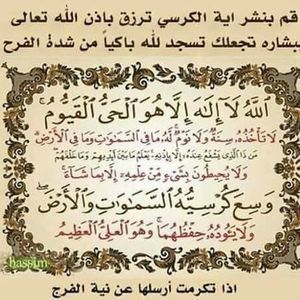 قم بنشر اية الكرسي ترزق باذن الله تعالى
بشاره تجعلك تسجد لله باكياً من شدة الفرح
ٱللَّهُ لَآ إِلَٰهَ إِلَّا هُوَ ٱلْحَىُّ ٱلْقَيُّومُ
لَا تَأْخُذُهُۥ سِنَةٌ وَلَا نَوْمٌ لَّهُۥ مَا فِى ٱلسَّمَٰوَٰتِ وَمَا فِى ٱلْأَرْضِ
مَن ذَا ٱلَّذِى يَشْفَعُ عِندَهُۥٓ إِلَّا بِإِذْنِهِۦ يَعْلَمُ مَا بَيْنَ أَيْدِيهِمْ وَمَا خَلْفَهُمْ
وَلَا يُحِيطُونَ بِشَىْءٍ مِّنْ عِلْمِهِۦٓ إِلَّا بِمَا شَآءَ
وَسِعَ كُرْسِيُّهُ ٱلسَّمَٰوَٰتِ وَٱلْأَرْضَ
وَلَا يَـُٔودُهُۥ حِفْظُهُمَا وَهُوَ ٱلْعَلِىُّ ٱلْعَظِيمُ
bassim
اذا تكرمت أرسلها عن نية الفرج